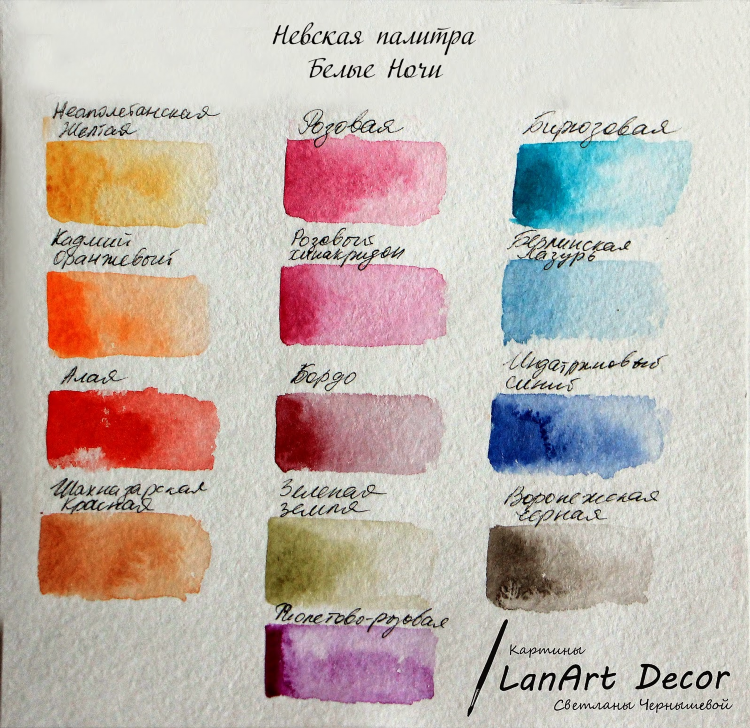 Невская палитра
Белые Ночи
Неаполетанская
Желтая
Розовая
Бирюзовая
Кадмий
Оранжевый
Розовый
хинакридон
Берлинская
Лазурь
Алая
Бордо
Индатреновый
синий
Шахназарская
Красная
Зеленая
земля
Воронежская
Черная
Фиолетово-розовая
Картины
LanArt Decor
Светланы Чернышевой